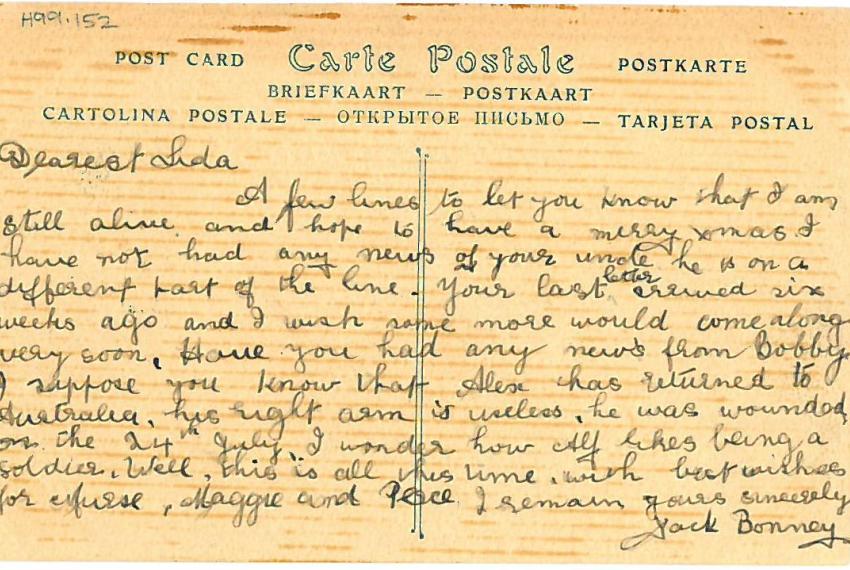 H99.152
POST CARD Carte Postale POSTKARTE
BRIEFKAART — POSTKAART
CARTOLINA POSTALE — ОТКРЫТОЕ ПИСЬМО — TARJETA POSTAL
Dearest Lida
A few lines to let you know that I am
still alive and hope to have a merry xmas I
have not had any news of your uncle he is on a
different part of the line. Your last letter arrived six
weeks ago and I wish some more would come along
very soon, Have you had any news from Bobby
I suppose you know that Alex has returned to
Australia, his right arm is useless, he was wounded
on the 24th July, I wonder how Alf likes being a
soldier. Well, this is all this time, with best wishes
for Nurse, Maggie and I remain yours sincerely
Jack Bonney